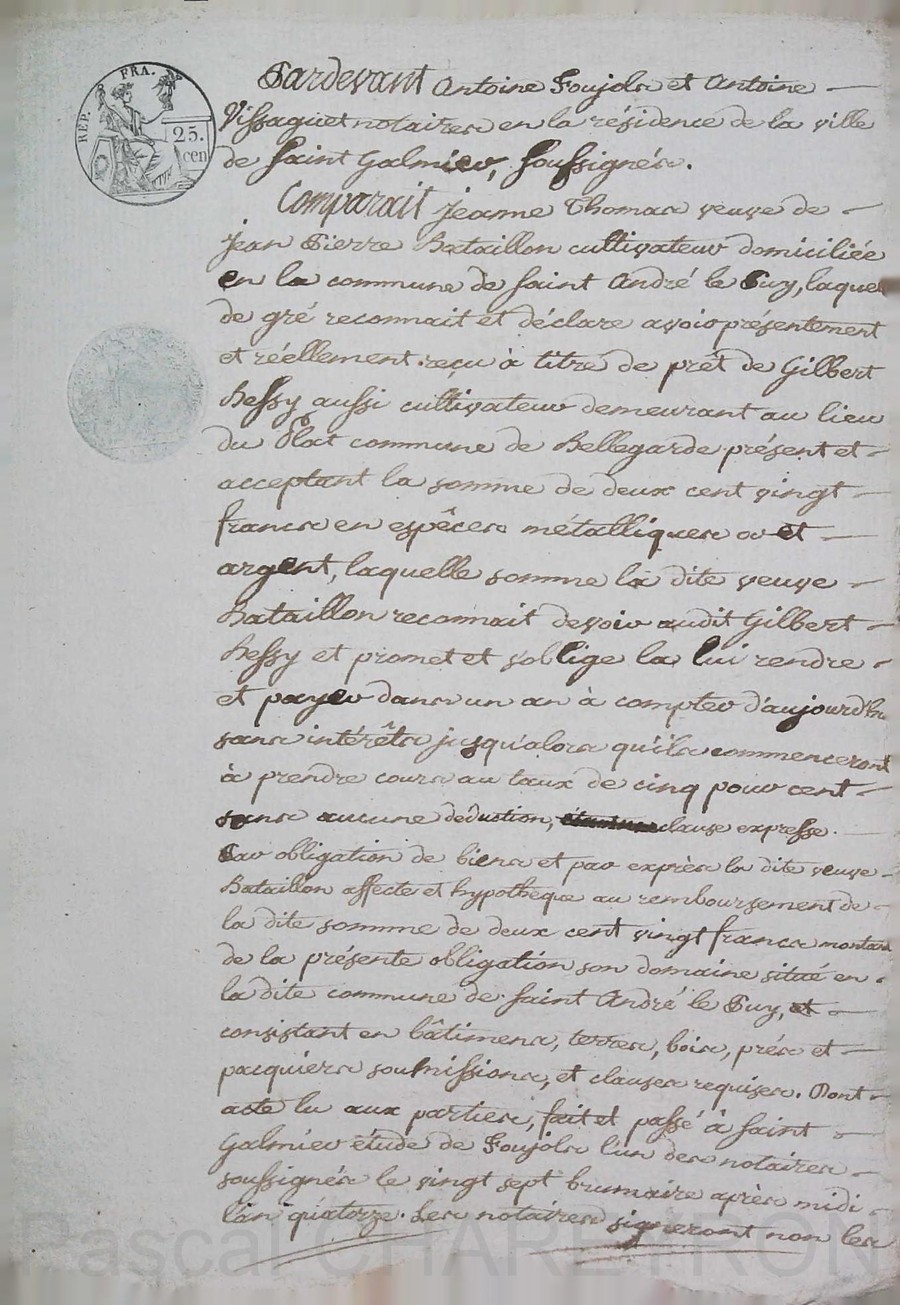 REP. FRA.
25.
cen
Pardevant Antoine Foujols et Antoine
Vissaguet notaires en la résidence de la ville
de Saint Galmier, soussignés.
Comparait jeanne Thomas veuve de
jean Pierre Bataillon cultivateur domiciliée
en la commune de Saint André le Puy, laquel
de gré reconnait et déclare avoir présentement
et réellement reçu à titre de prêt de Gilbert
Bessy aussi cultivateur demeurant au lieu
du Plat commune de Bellegarde présent et
acceptant la somme de deux cent vingt
francs en espêces métalliques or et
argent, laquelle somme la dite veuve
Bataillon reconnait devoir audit Gilbert
Bessy et promet et s'oblige la lui rendre
et payer dans un an à compter d'aujourd'hu
sans intérêts jusqu'alors qu'ils commenceront
à prendre cours au taux de cinq pour cent
sans aucune déduction, clause expresse.
Par obligation de biens et par exprès la dite veuve
Bataillon affecte et hypothèque au remboursement de
la dite somme de deux cent vingt francs montant
de la présente obligation son domaine situé en
la dite commune de Saint André le Puy, et
consistant en bâtimens, terres, bois, prés et
pacquiers soumissions, et clauses requises. Dont
acte lu aux parties, fait et passé à Saint
Galmier étude de Foujols l'un des notaires
soussignés le vingt sept brumaire après midi
l'an quatorze. Les notaires signeront non les
Pascal CHAREYRON